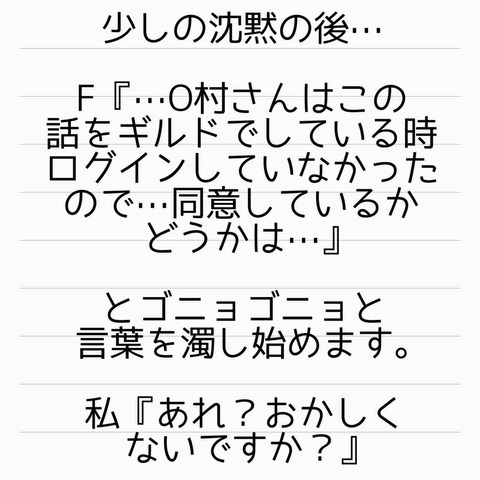 少しの沈黙の後…
F『…O村さんはこの
話をギルドでしている時
ログインしていなかった
ので…同意しているか
どうかは…』
とゴニョゴニョと
言葉を濁し始めます。
私『あれ？おかしく
ないですか？』